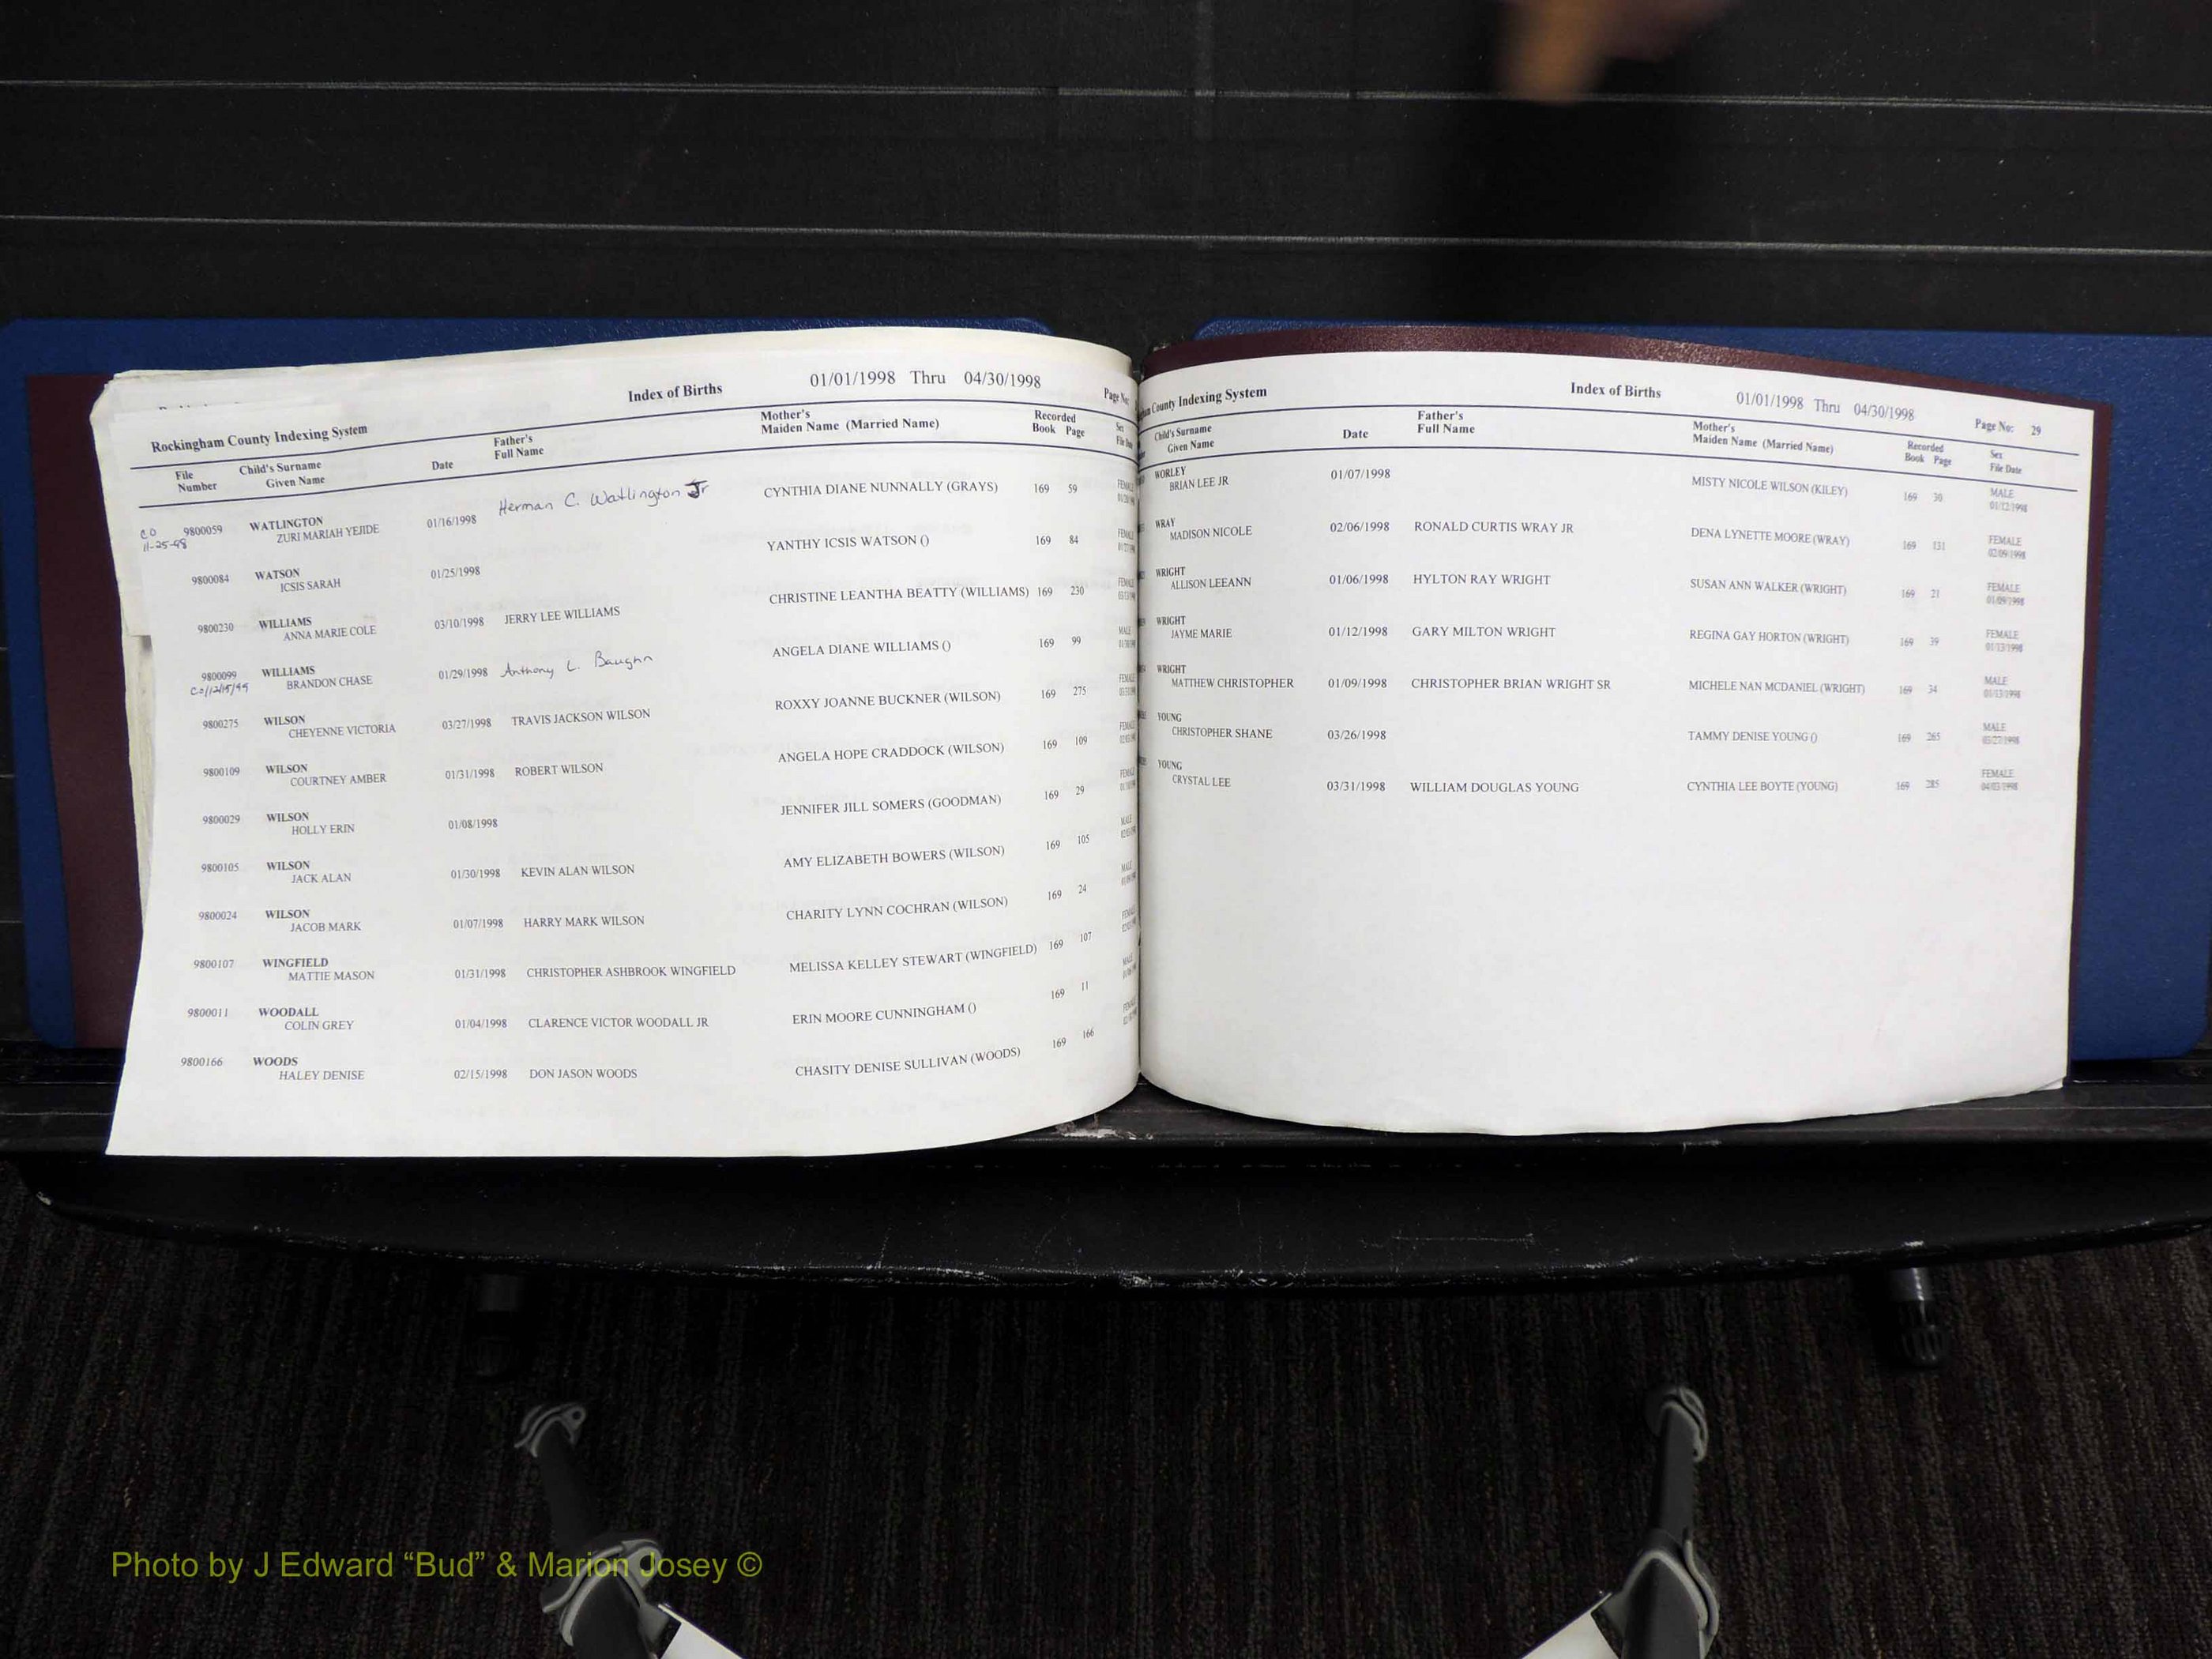 Rockingham County Indexing System Index of Births 01/01/1998 Thru 04/30/1998 Page No:
File Number Child's Surname Given Name Date Father's Full Name Mother's Maiden Name (Married Name) Recorded Book Page Sex
CO 9800059 WATLINGTON 01/16/1998 Herman C. Watlington Jr CYNTHIA DIANE NUNNALLY (GRAYS) 169 59
11-25-98 ZURI MARIAH YEJIDE
9800084 WATSON 01/25/1998 YANTHY ICSIS WATSON () 169 84
ICSIS SARAH
9800230 WILLIAMS 03/10/1998 JERRY LEE WILLIAMS CHRISTINE LEANTHA BEATTY (WILLIAMS) 169 230
ANNA MARIE COLE
9800099 WILLIAMS 01/29/1998 Anthony L. Baughn ANGELA DIANE WILLIAMS () 169 99 MALE
BRANDON CHASE
9800275 WILSON 03/27/1998 TRAVIS JACKSON WILSON ROXXY JOANNE BUCKNER (WILSON) 169 275
CHEYENNE VICTORIA
9800109 WILSON 01/31/1998 ROBERT WILSON ANGELA HOPE CRADDOCK (WILSON) 169 109
COURTNEY AMBER
9800029 WILSON 01/08/1998 JENNIFER JILL SOMERS (GOODMAN) 169 29
HOLLY ERIN
9800105 WILSON 01/30/1998 KEVIN ALAN WILSON AMY ELIZABETH BOWERS (WILSON) 169 105 MALE
JACK ALAN
9800024 WILSON 01/07/1998 HARRY MARK WILSON CHARITY LYNN COCHRAN (WILSON) 169 24 MALE
JACOB MARK
9800107 WINGFIELD 01/31/1998 CHRISTOPHER ASHBROOK WINGFIELD MELISSA KELLEY STEWART (WINGFIELD) 169 107
MATTIE MASON
9800011 WOODALL 01/04/1998 CLARENCE VICTOR WOODALL JR ERIN MOORE CUNNINGHAM () 169 11 MALE
COLIN GREY
9800166 WOODS 02/15/1998 DON JASON WOODS CHASITY DENISE SULLIVAN (WOODS) 169 166
HALEY DENISE
County Indexing System Index of Births 01/01/1998 Thru 04/30/1998 Page No: 29
Child's Surname Given Name Date Father's Full Name Mother's Maiden Name (Married Name) Recorded Book Page Sex File Date
WORLEY 01/07/1998 MISTY NICOLE WILSON (KILEY) 169 30 MALE
BRIAN LEE JR 01/12/1998
WRAY 02/06/1998 RONALD CURTIS WRAY JR DENA LYNETTE MOORE (WRAY) 169 131 FEMALE
MADISON NICOLE 02/09/1998
WRIGHT 01/06/1998 HYLTON RAY WRIGHT SUSAN ANN WALKER (WRIGHT) 169 21 FEMALE
ALLISON LEEANN 01/09/1998
WRIGHT 01/12/1998 GARY MILTON WRIGHT REGINA GAY HORTON (WRIGHT) 169 39 FEMALE
JAYME MARIE 01/13/1998
WRIGHT 01/09/1998 CHRISTOPHER BRIAN WRIGHT SR MICHELE NAN MCDANIEL (WRIGHT) 169 34 MALE
MATTHEW CHRISTOPHER 01/13/1998
YOUNG 03/26/1998 TAMMY DENISE YOUNG () 169 265 MALE
CHRISTOPHER SHANE 03/27/1998
YOUNG 03/31/1998 WILLIAM DOUGLAS YOUNG CYNTHIA LEE BOYTE (YOUNG) 169 285 FEMALE
CRYSTAL LEE 04/03/1998
Photo by J Edward “Bud” & Marion Josey ©